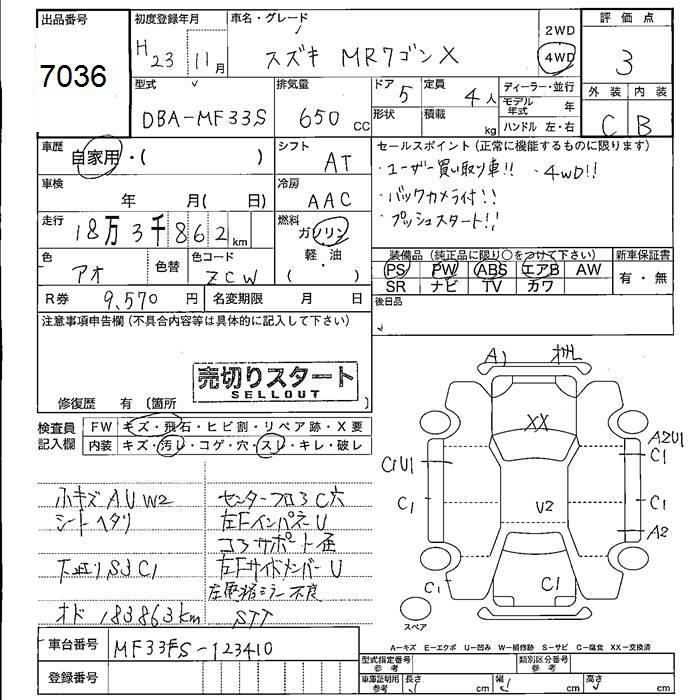 出品番号
7036
初度登録年月
H23 11月
車名・グレード
スズキ MRワゴン X
2WD
4WD
評価点
3
外装 内装
C B
型式
DBA-MF33S
排気量
650 CC
ドア
5
形状
定員
4人
積載
kg
ディーラー・並行
モデル年式 年
ハンドル 左・右
車歴
自家用・( )
シフト
AT
車検
年 月( 日)
冷房
AAC
走行
18万3千862 km
燃料
ガソリン
軽・油
( )
色
アオ
色替
色コード
ZCW
R券 9,570 円
名変期限 月 日
セールスポイント (正常に機能するものに限ります)
・ユーザー買い取り車!! ・4WD!!
・バックカメラ付!!
・プッシュスタート!!
装備品 (純正品に限り○をつけて下さい)
新車保証書
PS PW ABS エアB AW
SR ナビ TV カワ
有・無
後日品
注意事項申告欄(不具合内容等は具体的に記入して下さい)
売切りスタート
SELLOUT
修復歴 有 (箇所 )
検査員記入欄
FW キズ・飛石・ヒビ割・リペア跡・X要
内装 キズ・汚レ・コゲ・穴・スレ・キレ・破レ
小キズ A U W2
シートヘタリ
下廻り S3 C1
オド 183863km
センターフロ3 C穴
左Fインパネ U
コアサポート歪
左Fサイドメンバー U
STT
A1
XX
U2
C1
C1U1
C1
C1
A2U1
C1
C1
A2
スペア
A=キズ E=エクボ U=凹み W=補修跡 S=サビ C=腐食 XX=交換済
車台番号 MF33S-123410
登録番号
型式指定番号
参考
類別区分番号
参考
車庫証明用
参考
長さ cm
幅 cm
高さ cm